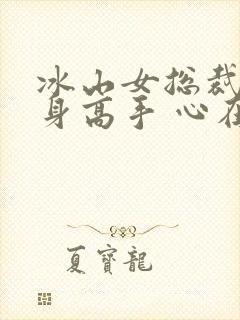 冰山女总裁
身高手 心在
夏寳龍